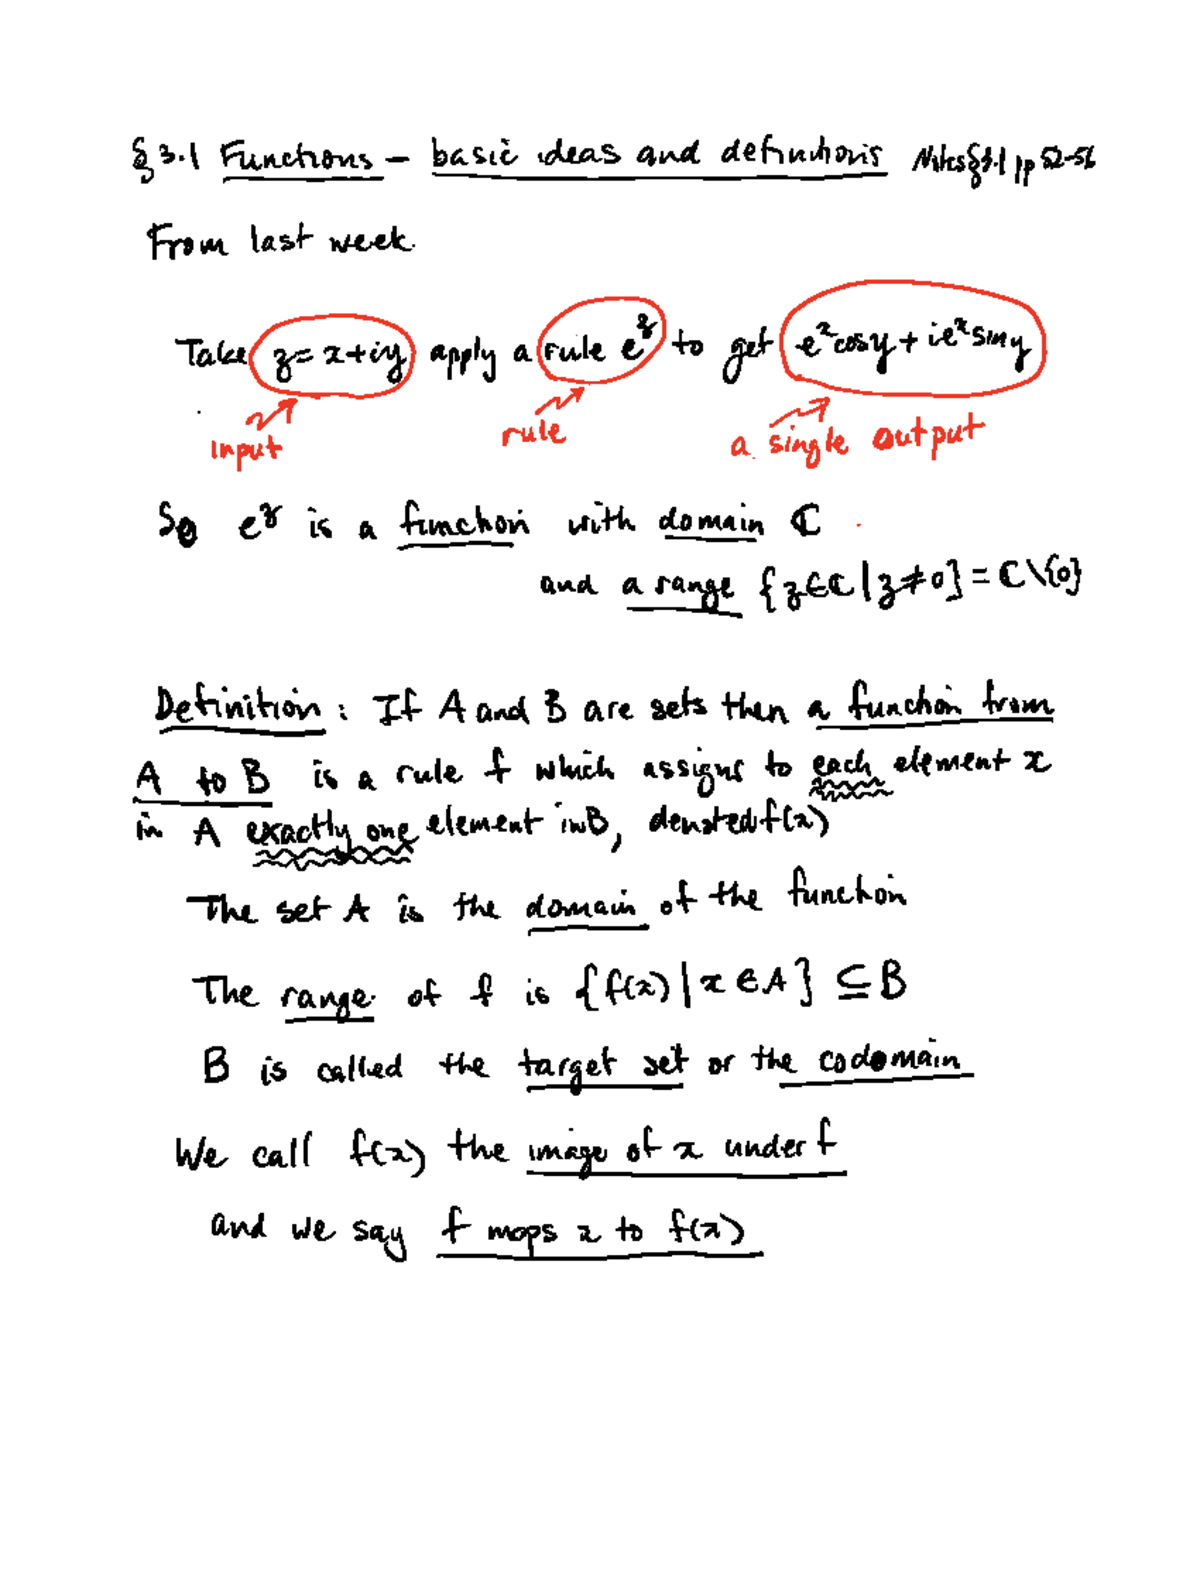 § 3.1 Functions – basic ideas and definitions Notes §3.1 pp 52-56
From last week.
Take z = x+iy apply a rule e^z to get e^x cos y + i e^x sin y
input rule a single output
So e^z is a function with domain ℂ
and a range {z∈ℂ | z≠0} = ℂ\{0}
Definition: If A and B are sets then a function from
A to B is a rule f which assigns to each element x
in A exactly one element in B, denoted f(x)
The set A is the domain of the function
The range of f is {f(x) | x ∈ A} ⊆ B
B is called the target set or the codomain
We call f(x) the image of x under f
and we say f maps x to f(x)